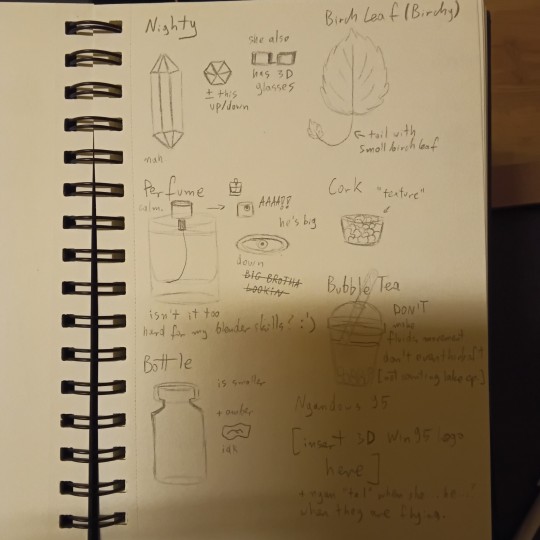 Nighty
she also
has 3D
glasses
± this
up/down
nah
Birch Leaf (Birchy)
← tail with
small birch leaf
Perfume
calm
→ AAAA!!
he's big
down
BIG BROTHA
LOOKIN
isn't it too
hard for my blender skills? :')
Cork
"texture"
Bubble Tea
DON'T
make
fluids movement
don't overthink it
Bottle
is smaller
+ amber
ink
35
[insert 3D Win95 logo
here]
when they are flying.